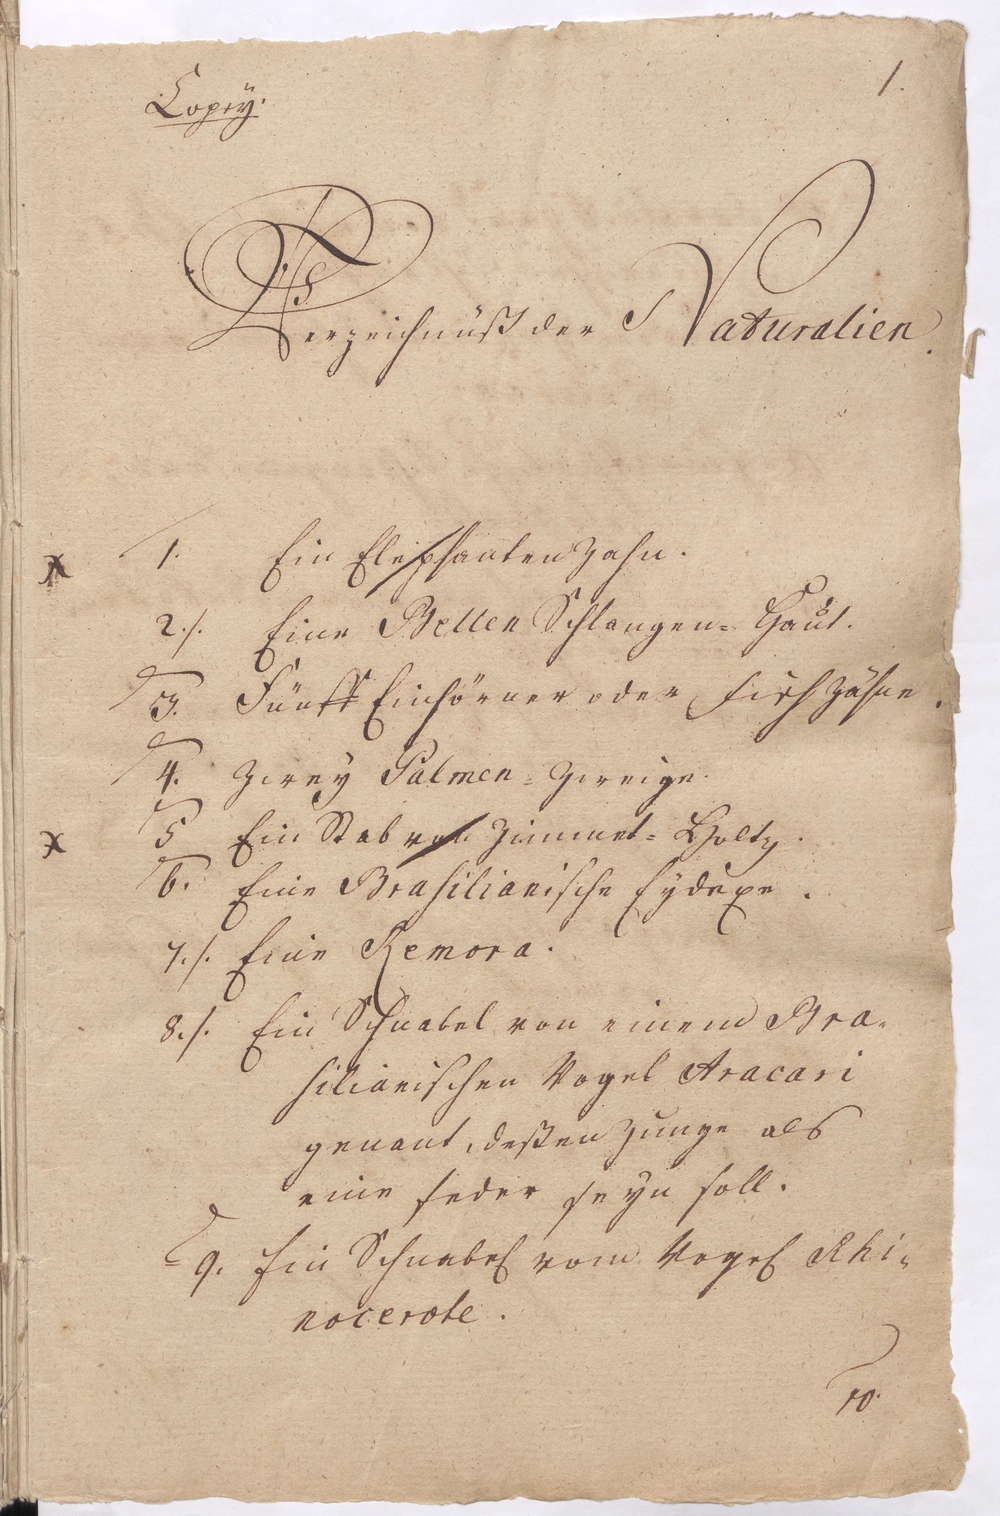 Copey.
1.
Verzeichnüß der Naturalien.
1. Ein Elephanten Zahn.
2./. Eine Bellen Schlangen= Haut.
3. Fünff Einhörner oder fisch Zähne.
4. Zwey Palmen= Zweige.
5 Ein Stab von Zimmet= Holtz.
6. Eine Brasilianische Eydexe.
7./. Eine Remora.
8./. Ein Schnabel von einem Bra-
silianischen Vogel Aracari
genant, deßen Zunge als
eine feder seyn soll.
9. Ein Schnabel vom Vogel Rhi-
nocerote.
10.